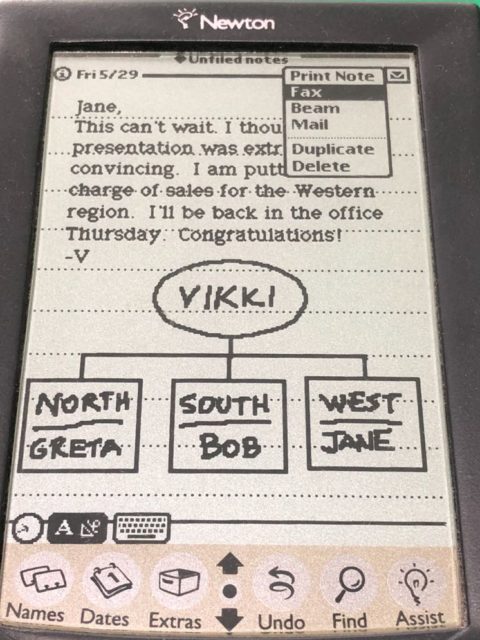 Newton
Unfiled notes
Fri 5/29
Print Note
Fax
Beam
Mail
Duplicate
Delete
Jane,
This can't wait. I thou
presentation was extr
convincing. I am putt
charge of sales for the Western
region. I'll be back in the office
Thursday. Congratulations!
-V
VIKKI
NORTH SOUTH WEST
GRETA BOB JANE
A
Names Dates Extras Undo Find Assist